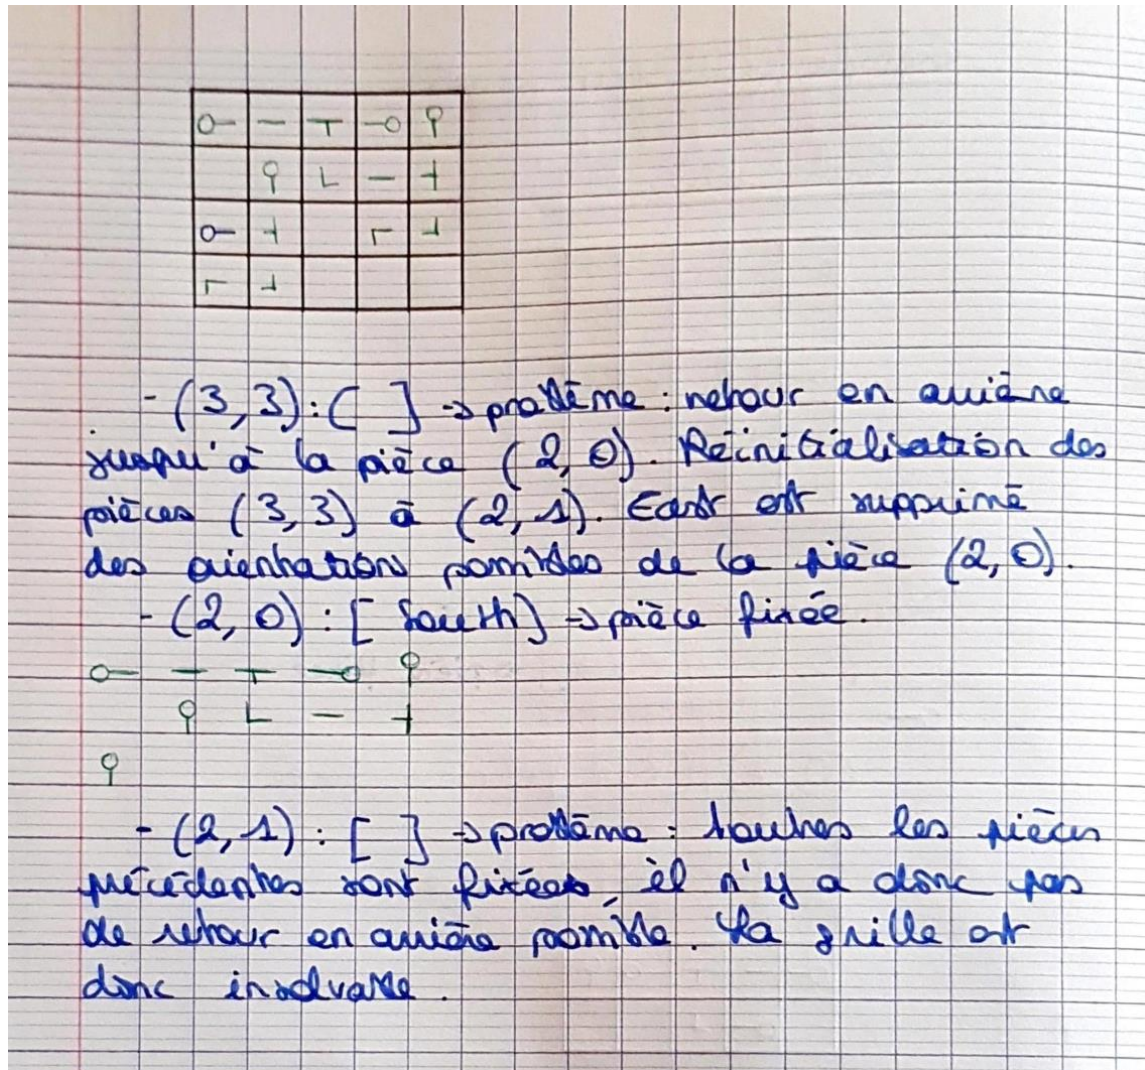 - (3,3) : [ ] → problème : retour en arrière
jusqu'à la pièce (2,0). Réinitialisation des
pièces (3,3) à (2,1). East est supprimé
des orientations possibles de la pièce (2,0).
- (2,0) : [South] → pièce fixée.
- (2,1) : [ ] → problème : toutes les pièces
précédentes sont fixées, il n'y a donc pas
de retour en arrière possible. La grille est
donc insolvable.